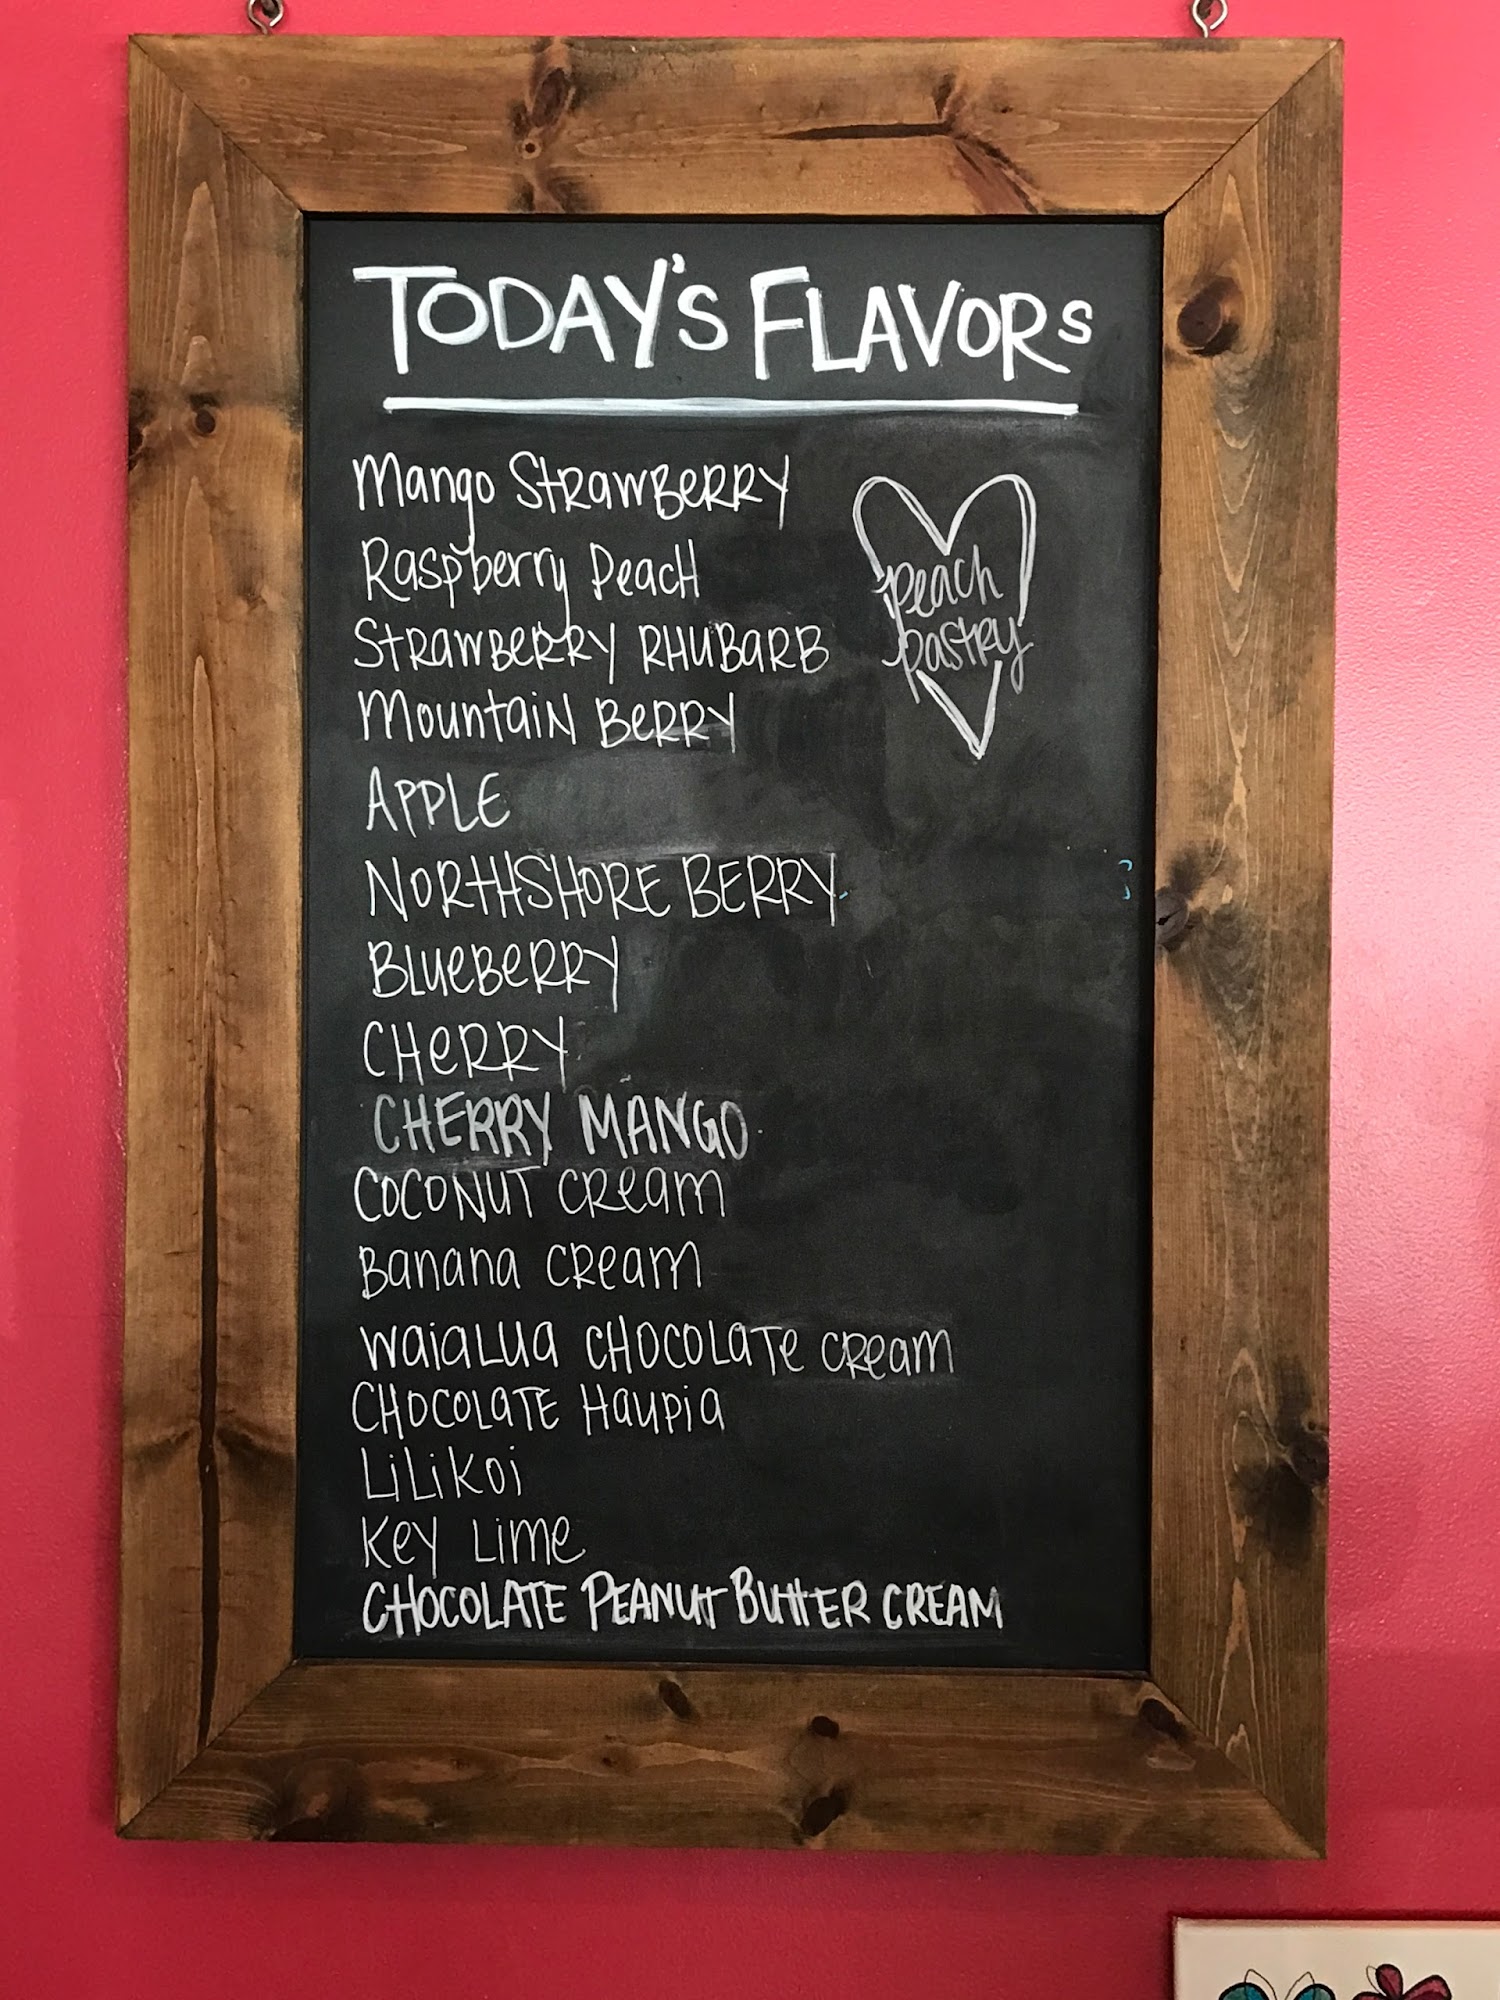 TODAY'S FLAVORS
Mango Strawberry
Raspberry Peach
Strawberry Rhubarb
Mountain Berry
APPLE
NORTHSHORE BERRY
Blueberry
Cherry
CHERRY MANGO
COCONUT Cream
Banana Cream
Waialua Chocolate Cream
Chocolate Haupia
Lilikoi
Key Lime
CHOCOLATE PEANUT BUTTER CREAM
Peach
Pastry